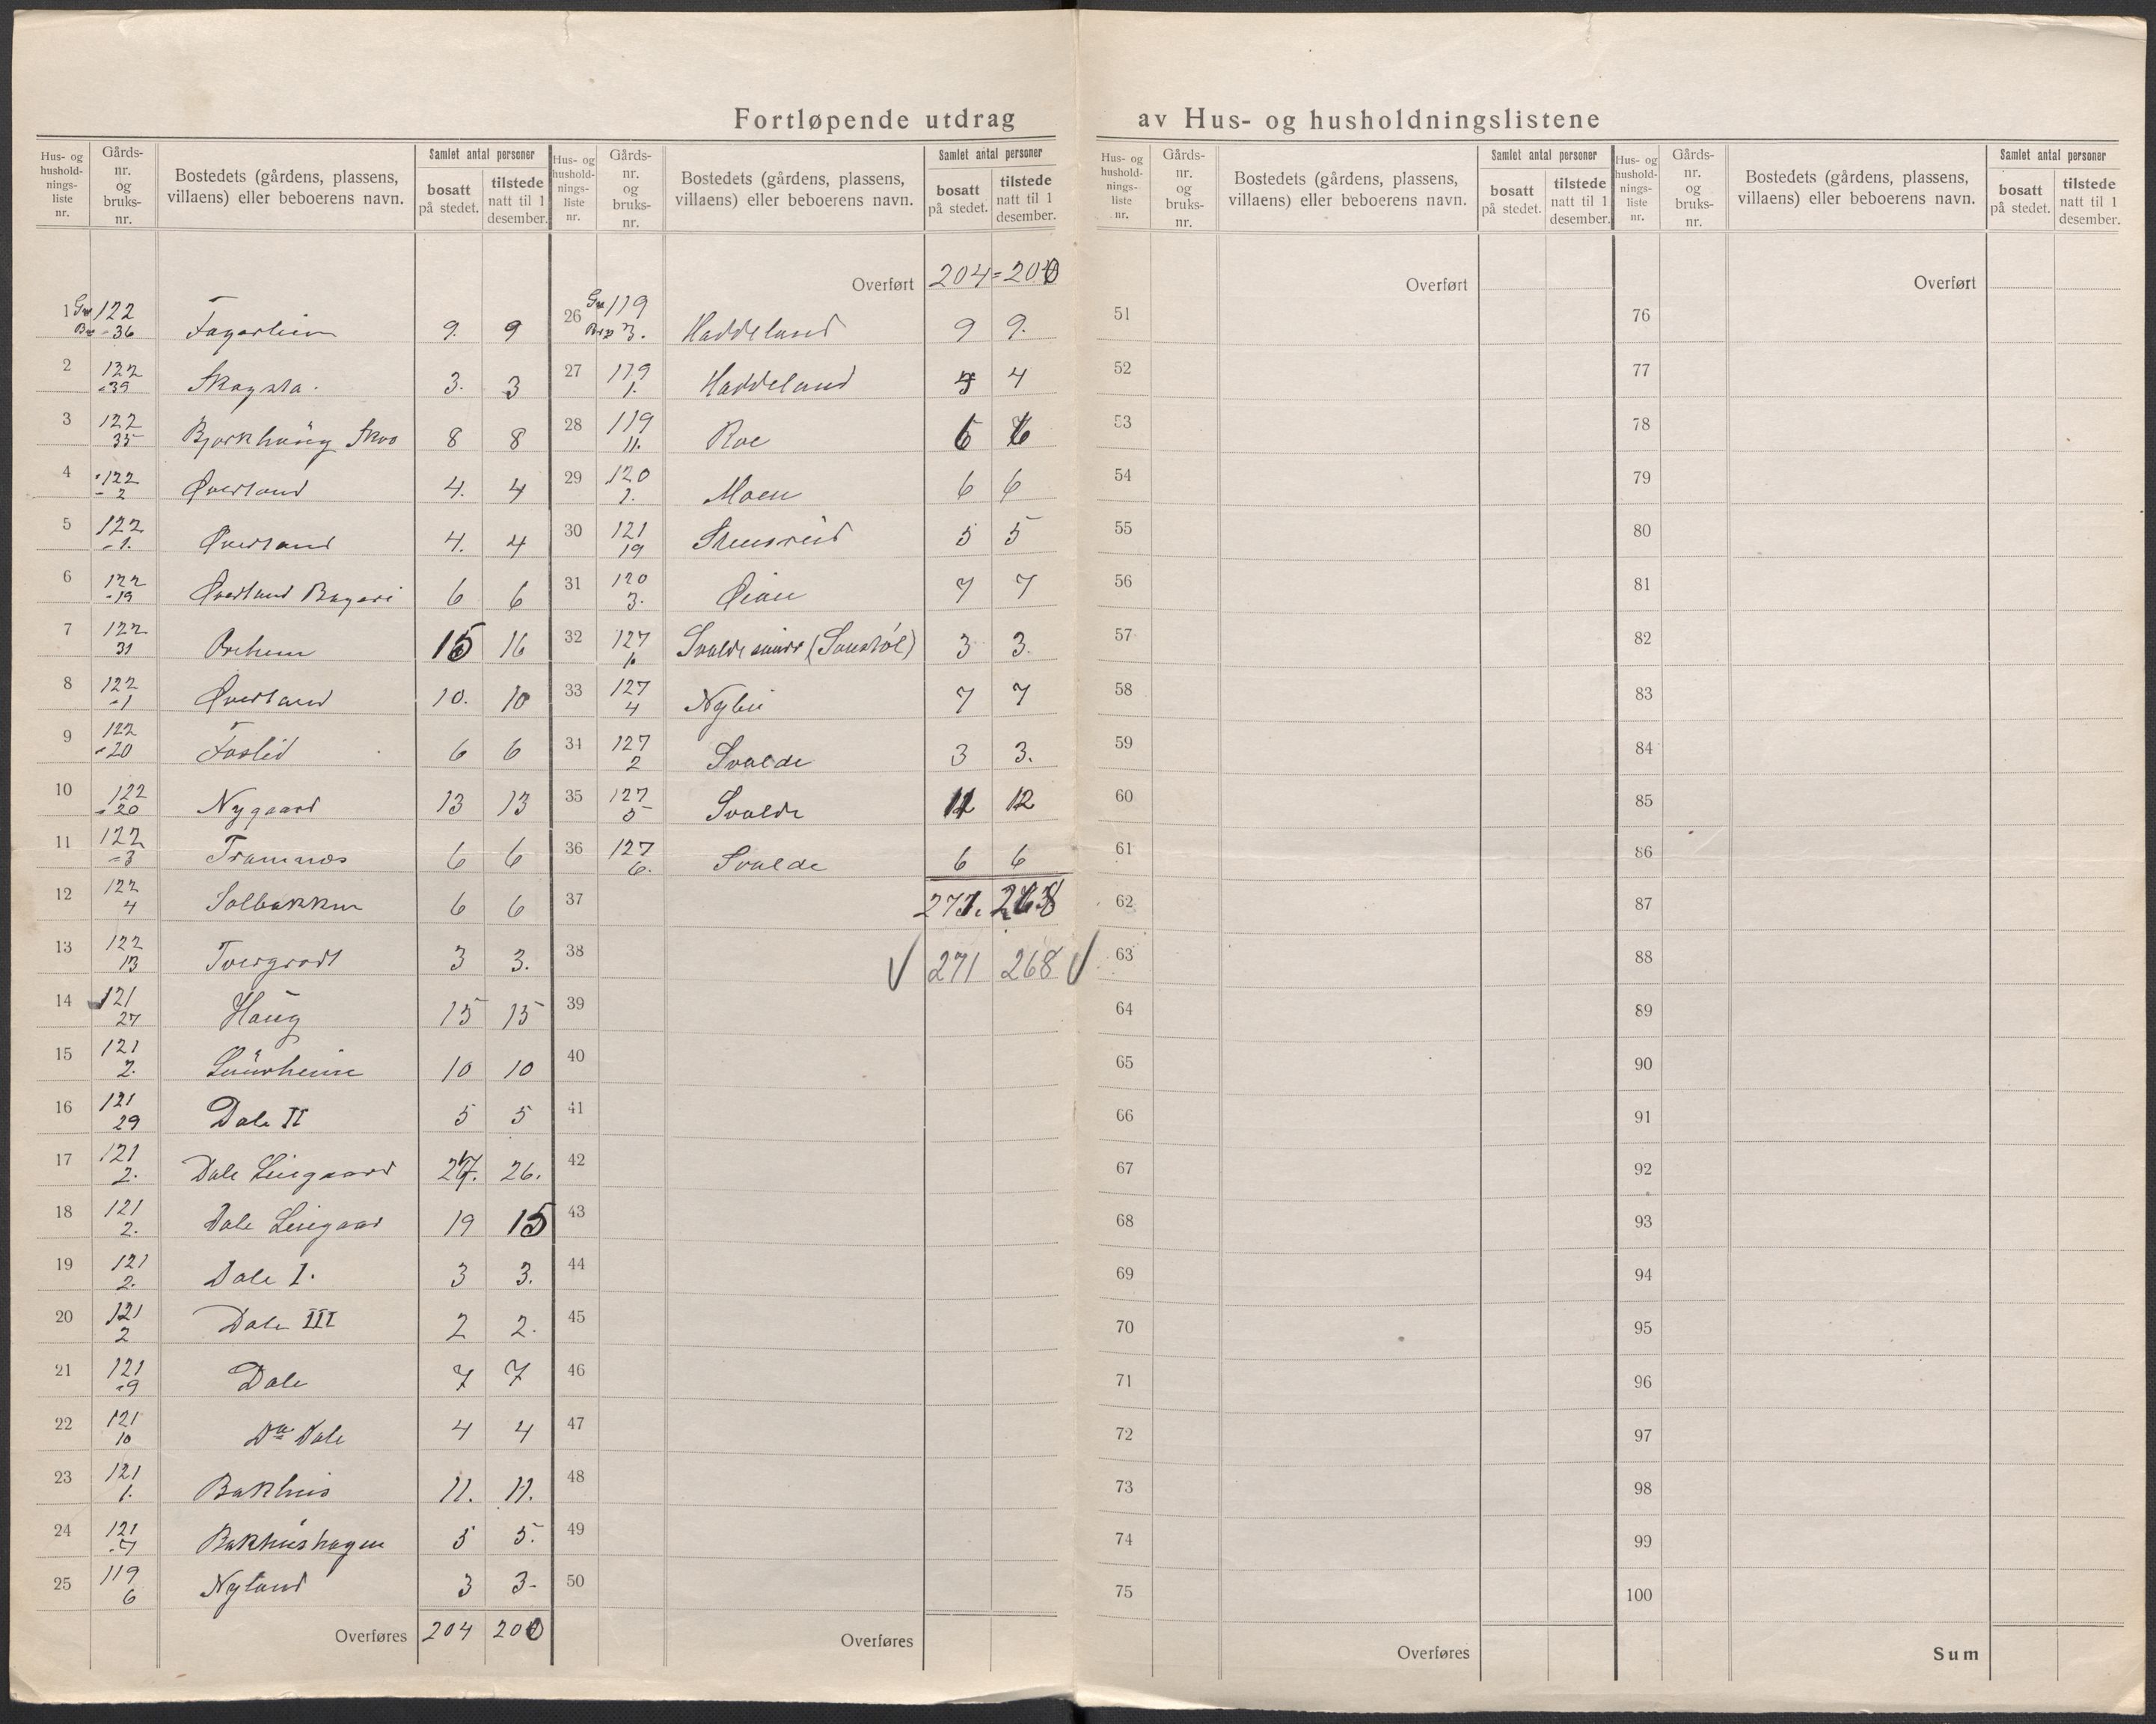 Fortløpende utdrag av Hus- og husholdningslistene
Hus- og husholdningsliste nr. | Gårds-nr. og bruks-nr. | Bostedets (gårdens, plassens, villaens) eller beboerens navn. | Samlet antal personer: bosatt på stedet. | tilstede natt til 1 desember.
1 | Gn 122 Bn 36 | Fagerheim | 9. | 9
2 | 122 - 39 | Skogsta. | 3. | 3
3 | 122 35 | Bjørkhaug Skoo | 8 | 8
4 | 122 - 2 | Øverland | 4. | 4
5 | 122 - 1. | Øverland | 4. | 4
6 | 122 - 19 | Øverland Bageri | 6 | 6
7 | 122 31 | | 15 | 16
8 | 122 - 1 | Øverland | 10. | 10
9 | 122 - 20 | Foslid | 6 | 6
10 | 122 - 20 | Nygaard | 13 | 13
11 | 122 - 3 | Framnes | 6 | 6
12 | 122 4 | Solbakken | 6 | 6
13 | 122 13 | | 3 | 3.
14 | 121 27 | Haug | 15 | 15
15 | 121 2. | | 10 | 10
16 | 121 29 | Dale II | 5 | 5
17 | 121 2. | Dale | 27. | 26.
18 | 121 2. | Dale | 19 | 15
19 | 121 2. | Dale I. | 3 | 3.
20 | 121 2 | Dale III | 2 | 2.
21 | 121 - 9 | Dale | 7 | 7
22 | 121 10 | Do Dale | 4 | 4
23 | 121 1. | Bakhus | 11. | 11.
24 | 121 - 7 | Bakhushagen | 5 | 5.
25 | 119 6 | Nyland | 3 | 3-
Overføres 204 200
Hus- og husholdningsliste nr. | Gårds-nr. og bruks-nr. | Bostedets (gårdens, plassens, villaens) eller beboerens navn. | Samlet antal personer: bosatt på stedet. | tilstede natt til 1 desember.
Overført 204 = 200
26 | Gn 119 3. | Haddeland | 9 | 9.
27 | 119 1. | Haddeland | | 4
28 | 119 11. | Roe | 6 | 6
29 | 120 1. | Moen | 6 | 6
30 | 121 19 | | 5 | 5
31 | 120 3. | Øian | 7 | 7
32 | 127 1. | | 3 | 3.
33 | 127 4 | | 7 | 7
34 | 127 2 | Svalde | 3 | 3.
35 | 127 5 | Svalde | | 12
36 | 127 6. | Svalde | 6 | 6
37 | 271. 268
38 | √ 271 268 √
39
40
41
42
43
44
45
46
47
48
49
50
Overføres
Hus- og husholdningsliste nr. | Gårds-nr. og bruks-nr. | Bostedets (gårdens, plassens, villaens) eller beboerens navn. | Samlet antal personer: bosatt på stedet. | tilstede natt til 1 desember.
Overført
51
52
53
54
55
56
57
58
59
60
61
62
63
64
65
66
67
68
69
70
71
72
73
74
75
Overføres
Hus- og husholdningsliste nr. | Gårds-nr. og bruks-nr. | Bostedets (gårdens, plassens, villaens) eller beboerens navn. | Samlet antal personer: bosatt på stedet. | tilstede natt til 1 desember.
Overført
76
77
78
79
80
81
82
83
84
85
86
87
88
89
90
91
92
93
94
95
96
97
98
99
100
Sum